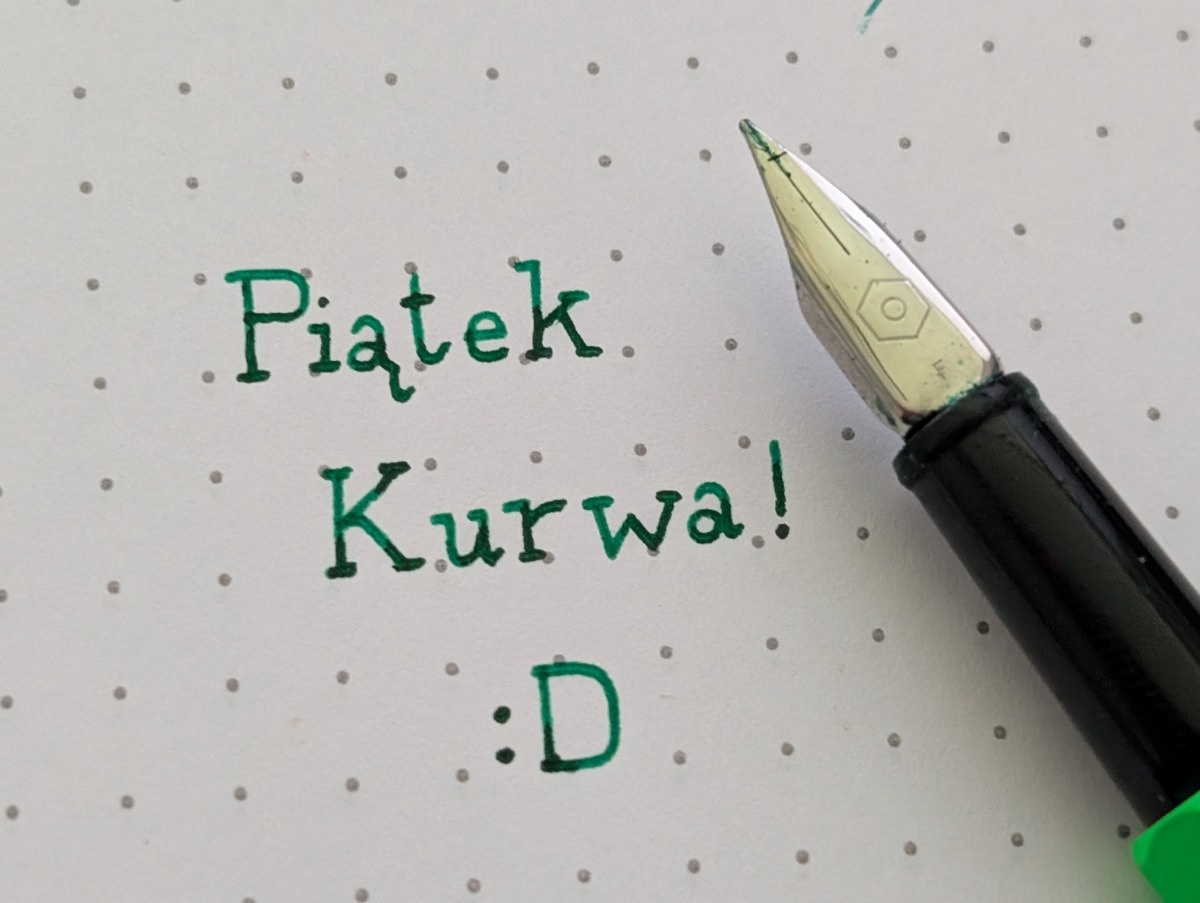 Piątek
Kurwa!
:D